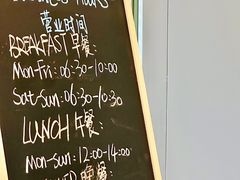 BUSINESS HOURS
营业时间
BREAKFAST 早餐:
Mon-Fri: 06:30-10:00
Sat-Sun: 06:30-10:30
LUNCH 午餐:
Mon-Sun: 12:00-14:00
DINNER 晚餐: